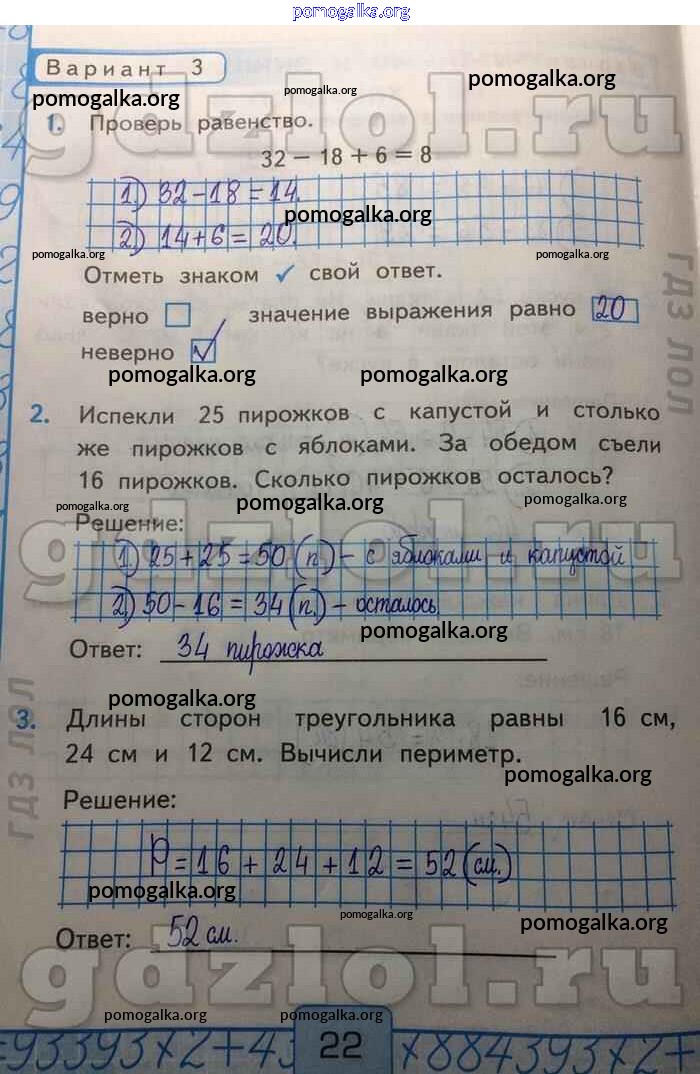 pomogalka.org
Вариант 3
pomogalka.org pomogalka.org pomogalka.org
gdzlol.ru
1. Проверь равенство.
32 − 18 + 6 = 8
1) 32−18=14.
pomogalka.org
2) 14+6=20.
pomogalka.org pomogalka.org
Отметь знаком ✓ свой ответ.
гдз лол
верно значение выражения равно 20
неверно ✓
pomogalka.org pomogalka.org
2. Испекли 25 пирожков с капустой и столько
же пирожков с яблоками. За обедом съели
16 пирожков. Сколько пирожков осталось?
pomogalka.org pomogalka.org pomogalka.org
gdzlol.ru
Решение:
1) 25+25=50(п.) – с яблоками и капустой
2) 50−16=34(п.) – осталось
pomogalka.org
Ответ: 34 пирожка
гдз лол
pomogalka.org
3. Длины сторон треугольника равны 16 см,
24 см и 12 см. Вычисли периметр.
pomogalka.org
Решение:
P=16+24+12=52(см.)
pomogalka.org pomogalka.org pomogalka.org
Ответ: 52 см.
gdzlol.ru
pomogalka.org pomogalka.org pomogalka.org
=93393×2+43 22 ×884393×2+